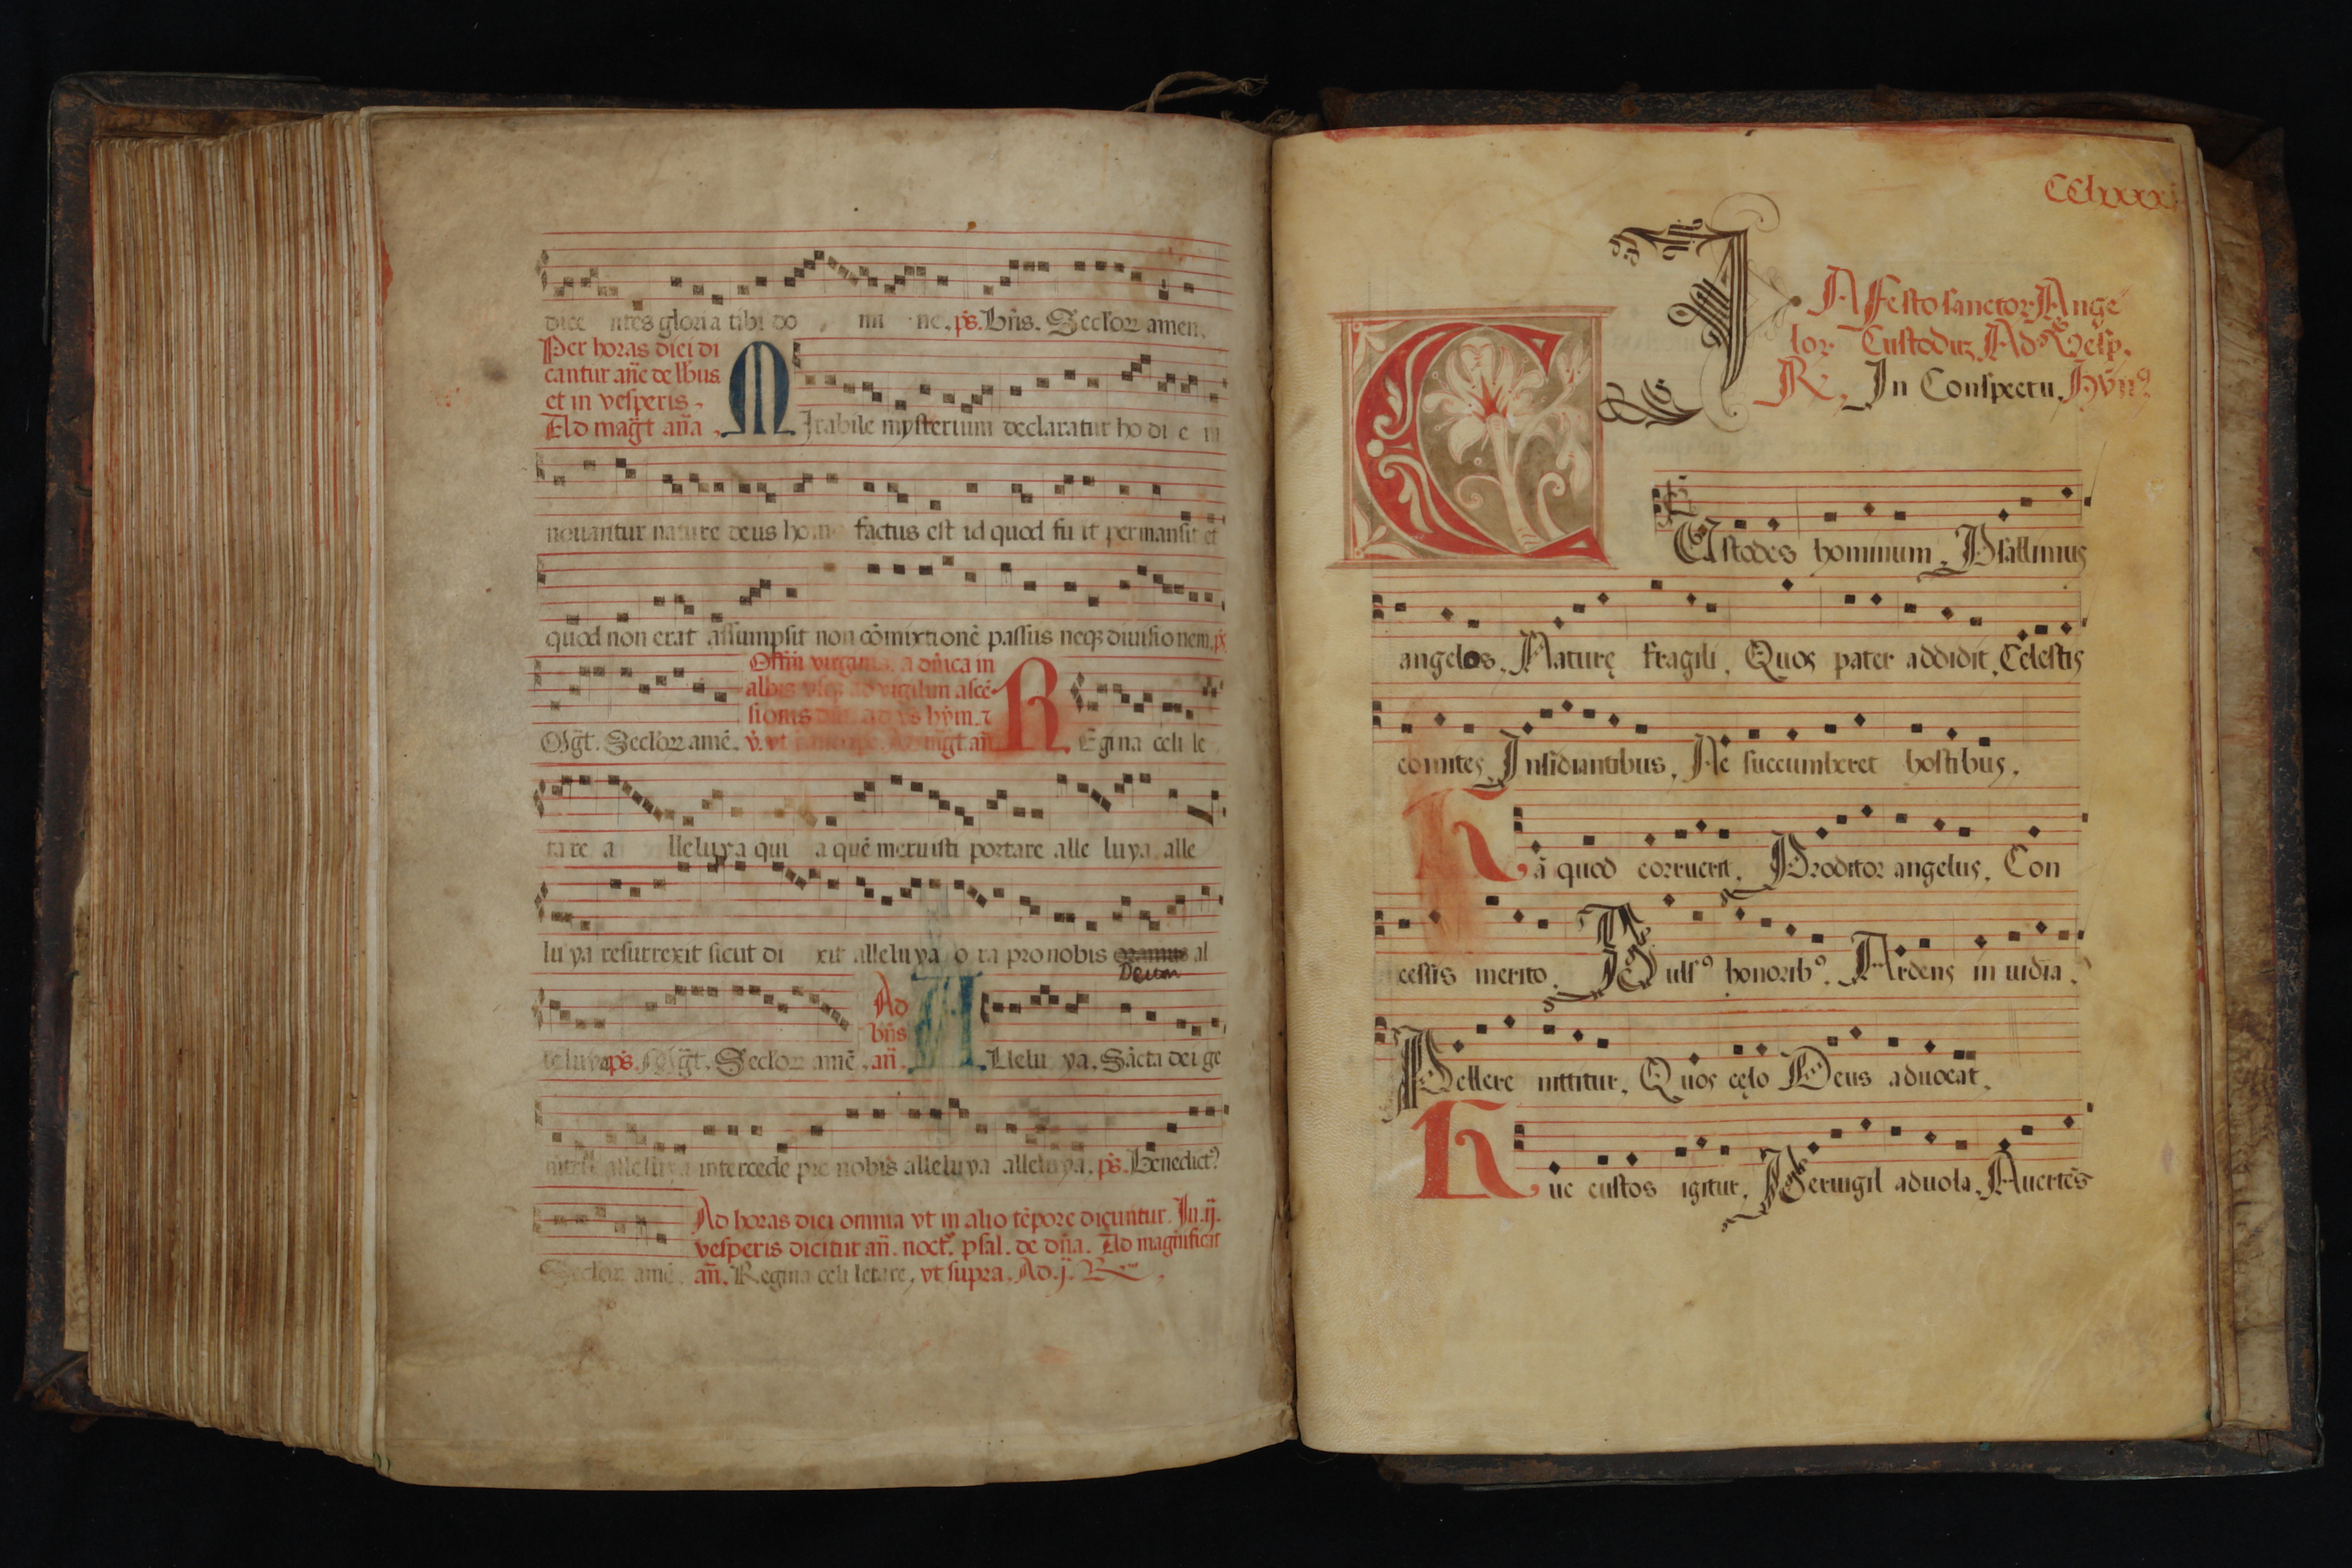 dice ntes gloria tibi do mi ne. p̄s. Bn̄s. Seclorꝝ amen.
Per horas diei di
cantur an̄e de lbus
et in vesperis.
Ad mag̃t an̄a.
MIrabile mysterium declaratur ho di e in
nouantur nature deus homo factus est id quod fu it permansit et
quod non erat assumpsit non cōmixtionē passus neqꝫ diuisionem. p̄s
Mg̃t. Seclorꝝ amē.
Offm̄ virginis a dn̄ica in
albis vsqꝫ ad vigiliam ascē
sionis
hym. ⁊
v̄. vt
mg̃t an̄
REgina celi le
tare a lleluya qui a quē meruisti portare alle luya alle
lu ya resurrexit sicut di xit alleluya o ra pro nobis oramus al
Deum
leluya p̄s. Mg̃t. Seclorꝝ amē.
Ad
bn̄s
an̄.
ALlelu ya. Sācta dei ge
nitrix alleluya intercede pro nobis alleluya alleluya. p̄s. Benedictꝰ
Seclorꝝ amē.
Ad horas diei omnia vt in alio tēpore dicuntur. In .ij.
vesperis dicitur an̄. noctꝰ. psal. de dn̄a. Ad magnificat
an̄. Regina celi letare, vt supra. Ad .j.
CClxxxxi
IN Festo sanctor Ange
lor Custoduꝫ Ad Vesp.
R. In Conspectu. Hym̄ꝰ
CUstodes hominum. Psallimus
angelos. Naturę fragili. Quos pater addidit. Celestis
comites. Insidiantibus. Ne succumberet hostibus.
Nā quod corruerit. Proditor angelus. Con
cessis merito. Pulsꝰ honoribꝰ. Ardens in uidia.
Pellere nititur. Quos cęlo Deus aduocat.
Huc custos igitur. Peruigil aduola. Auertēs